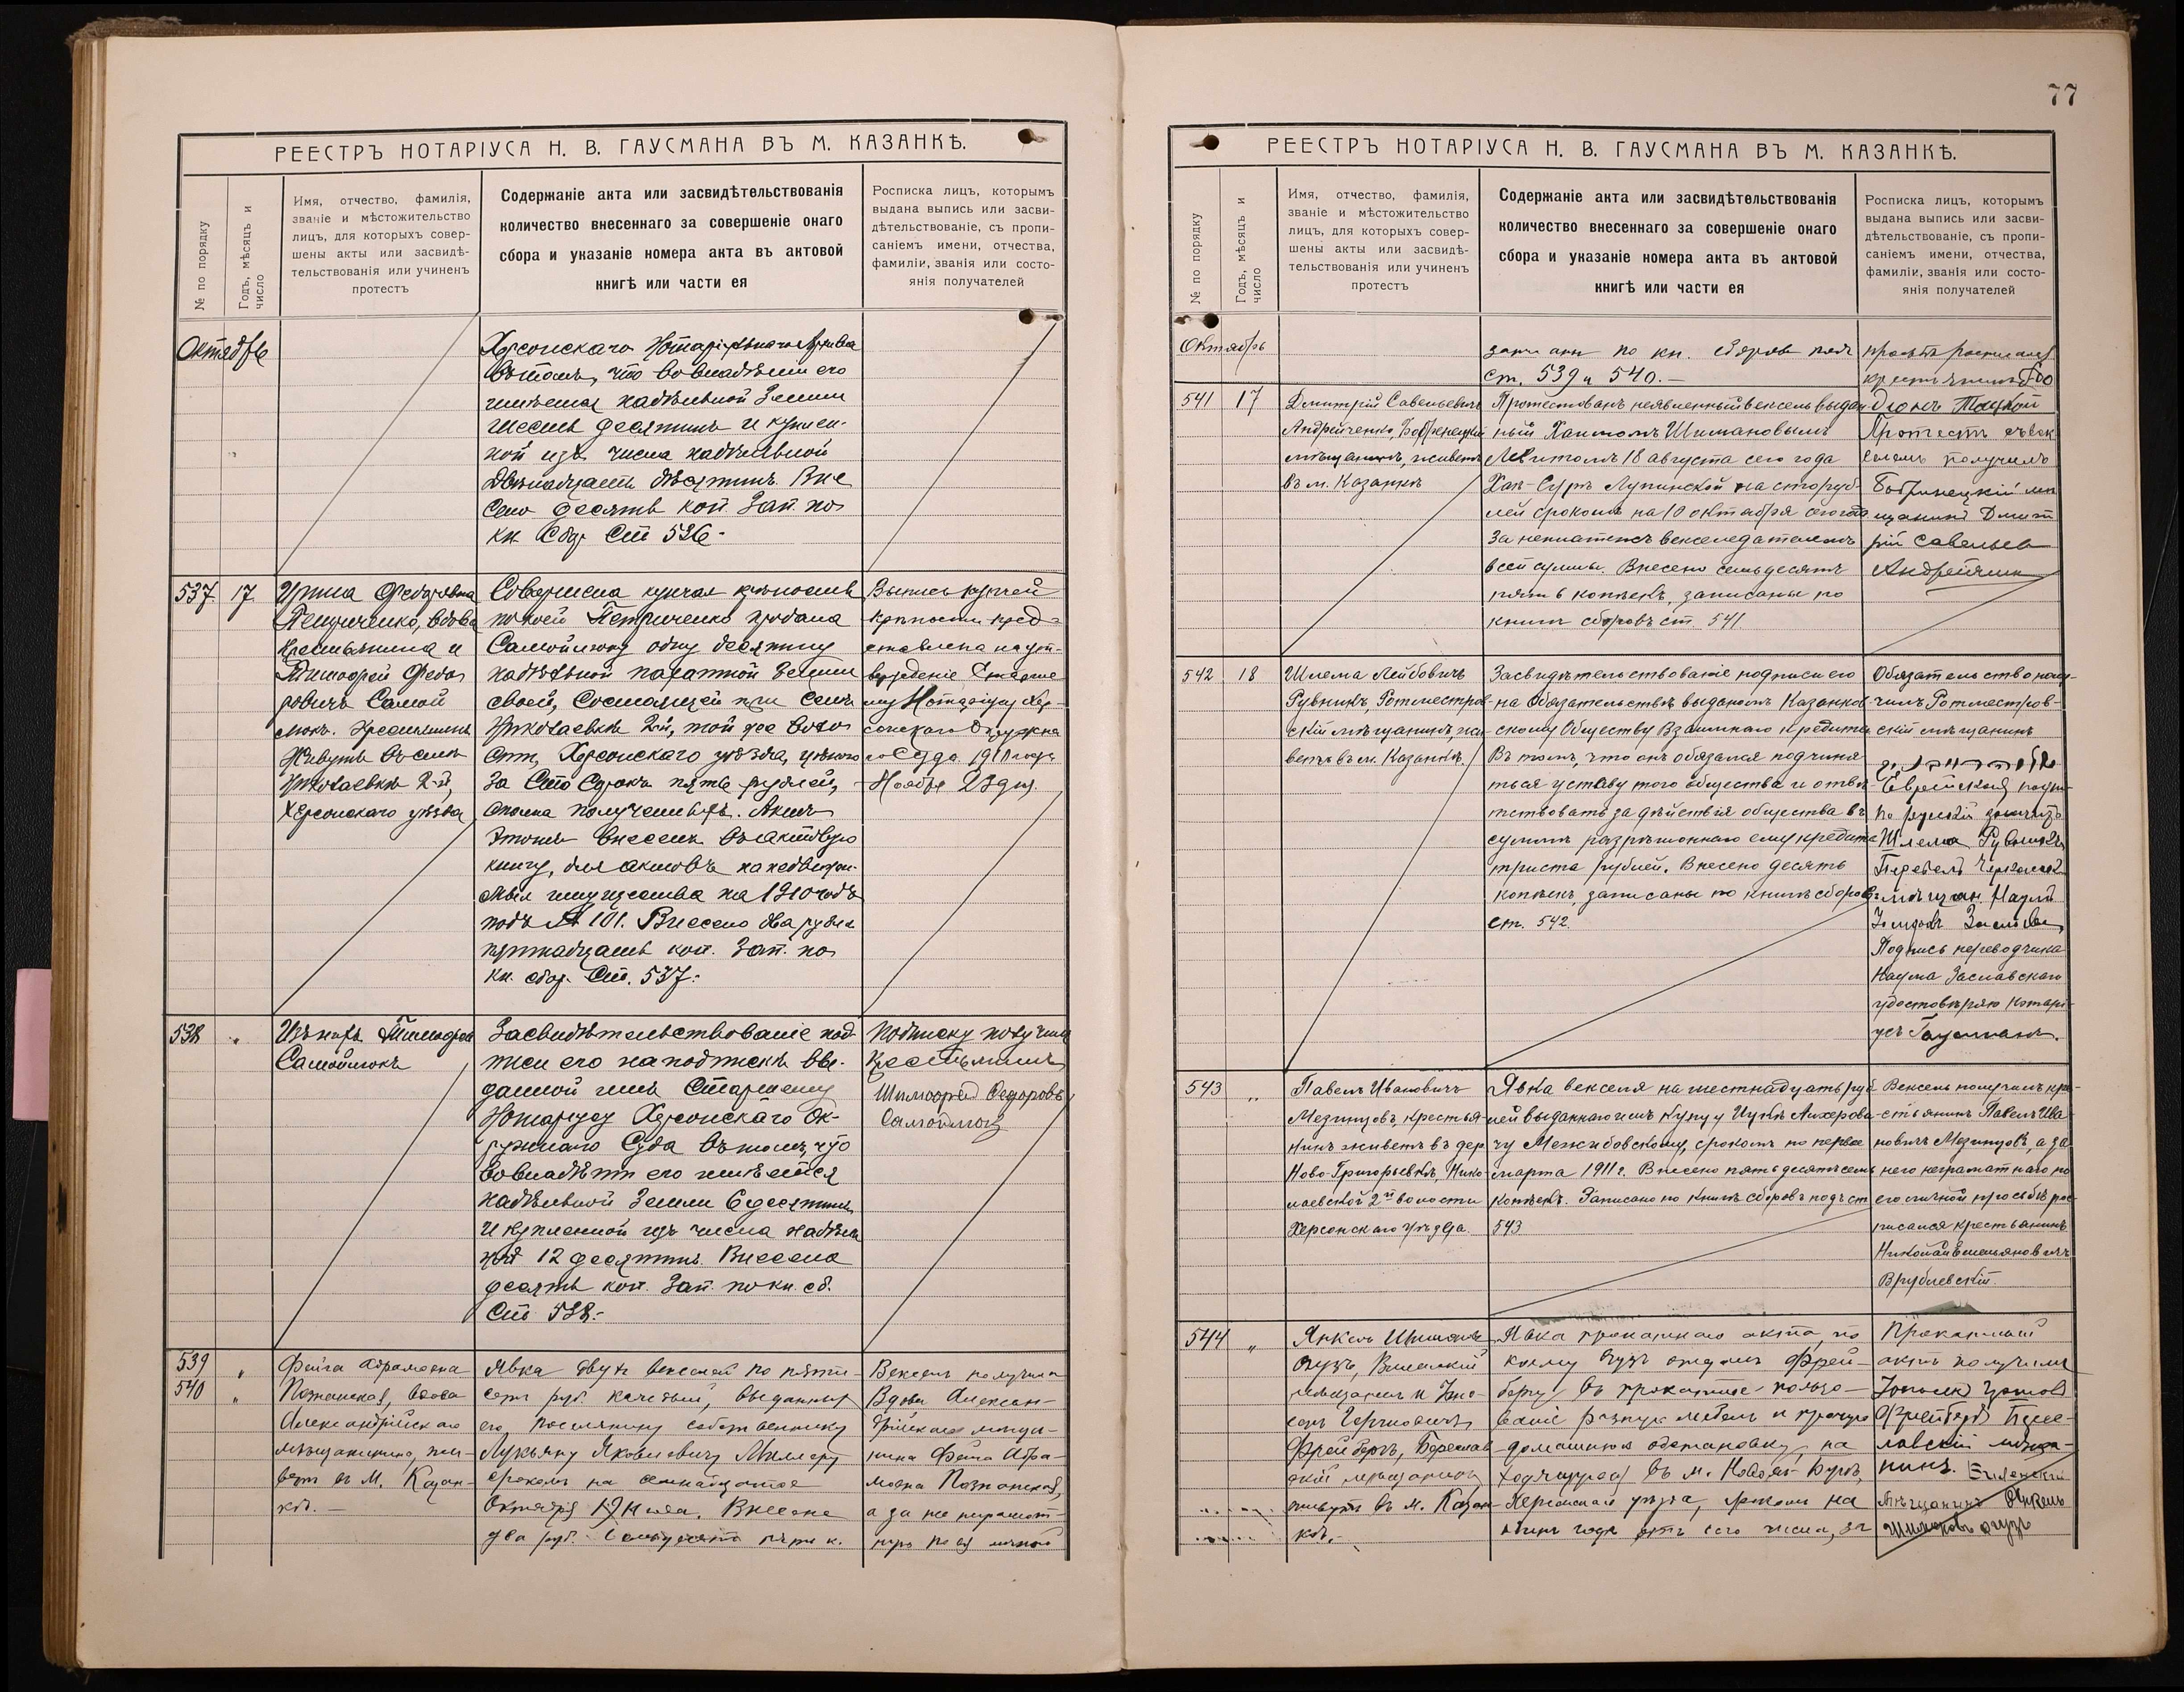 РЕЕСТРЪ НОТАРІУСА Н. В. ГАУСМАНА ВЪ М. КАЗАНКѢ.
№ по порядку
Годъ, мѣсяцъ и
число
Имя, отчество, фамилія,
званіе и мѣстожительство
лицъ, для которыхъ совер-
шены акты или засвидѣ-
тельствованія или учиненъ
протестъ
Содержаніе акта или засвидѣтельствованія
количество внесеннаго за совершеніе онаго
сбора и указаніе номера акта въ актовой
книгѣ или части ея
Росписка лицъ, которымъ
выдана выпись или засви-
дѣтельствованіе, съ пропи-
саніемъ имени, отчества,
фамиліи, званія или состо-
янія получателей
Октябрь
Херсонскаго Нотаріальнаго Архива
въ томъ, что во владѣніи его
имѣется надѣльной земли
шесть десятинъ и куплен-
ной изъ числа надѣльной
двѣнадцать десятинъ. Вне
сено десять коп. Зап. по
кн. сбор. Ст 536.
537. 17.
Ирина Федоровна
Петриченко, вдова
крестьянина и
Тимофей Федо
ровичъ Самой
люкъ, крестьянинъ
Живутъ въ селѣ
Николаевкѣ 2й,
Херсонскаго уѣзда
Совершена купчая крѣпость
по коей Петриченко продала
Самойлюку одну десятину
надѣльной пахатной земли
своей, состоящей при селѣ
Николаевкѣ 2й, той же воло
сти, Херсонскаго уѣзда, цѣною
за сто сорокъ пять рублей,
сполна полученныхъ. Актъ
этотъ внесенъ въ актовую
книгу, для актовъ на недвижи-
мыя имущества на 1910 годъ
подъ № 101. Внесено два рубля
пятнадцать коп. Зап. по
кн. сбор. Ст. 537.
Выпись купчей
крѣпости пред-
ставлена на ут-
вержденіе Старше
му Нотаріусу Хер-
сонскаго Окружна
го Суда 1910 года
Ноября 23 дня.
538 "
Тимофей
Самойлюкъ
Засвидѣтельствованіе под-
писи его на подпискѣ вы-
данной имъ Старшему
Нотаріусу Херсонскаго Ок-
ружнаго Суда въ томъ, что
во владѣніи его имѣется
надѣльной земли 6 десятинъ
и купленной изъ числа надѣль
ной 12 десятинъ. Внесено
десять коп. Зап. по кн. сб.
Ст. 538.
Подписку получилъ
крестьянинъ
Тимофей Федоровъ
Самойлюкъ
539 "
540 "
Фейга Абрамовна
Познанская, вдова
Александрійскаго
мѣщанина, жи-
ветъ въ М. Казан-
кѣ. —
Явка двухъ векселей по пяти-
сотъ руб. каждый, выданныхъ
ею поселянину собственнику
Лукьяну Яковлевичу Миллеру
срокомъ на семнадцатое
Октября 1911 года. Внесено
два руб. семьдесятъ пять к.
Векселя получила
Вдова Алексан-
дрійскаго мѣща-
нина Фейга Абра-
мовна Познанская,
а за не неграмот-
ную по ея личной
77
РЕЕСТРЪ НОТАРІУСА Н. В. ГАУСМАНА ВЪ М. КАЗАНКѢ.
№ по порядку
Годъ, мѣсяцъ и
число
Имя, отчество, фамилія,
званіе и мѣстожительство
лицъ, для которыхъ совер-
шены акты или засвидѣ-
тельствованія или учиненъ
протестъ
Содержаніе акта или засвидѣтельствованія
количество внесеннаго за совершеніе онаго
сбора и указаніе номера акта въ актовой
книгѣ или части ея
Росписка лицъ, которымъ
выдана выпись или засви-
дѣтельствованіе, съ пропи-
саніемъ имени, отчества,
фамиліи, званія или состо-
янія получателей
Октябрь
записаны по кн. сборовъ подъ
ст. 539 и 540. —
просьбѣ росписался
крестьянинъ
541 17
Дмитрій Савельевичъ
Андрейченко, Бобринецкій
мѣщанинъ, живетъ
въ м. Казанкѣ
Протестованъ неявленный вексель выдан
ный Хаимомъ Шимановымъ
Левитомъ 18 августа сего года
Хае-Сурѣ Лупинской на сто руб-
лей срокомъ на 10 октября сего года
за неплатежъ векселедателемъ
всей суммы. Внесено семьдесятъ
пять копѣекъ, записаны по
книгѣ сборовъ ст. 541.
Протестъ съ век
селемъ получилъ
Бобринецкій мѣ
щанинъ Дмит
рій Савельев
Андрейченко
542 18
Шлема Лейбовичъ
Рувникъ, Ротмистров-
скій мѣщанинъ, жи-
ветъ въ м. Казанкѣ.
Засвидѣтельствованіе подписи его
на обязательствѣ выданномъ Казанков-
скому Обществу Взаимнаго Кредита
въ томъ, что онъ обязался подчиня
ться уставу того общества и отвѣ-
тствовать за дѣйствія общества въ
суммѣ разрѣшоннаго ему кредита
триста рублей. Внесено десять
копѣекъ, записаны по книгѣ сборовъ
ст. 542.
Обязательство полу-
чилъ Ротмистров-
скій мѣщанинъ
Еврейская подпи
по русски значитъ
Шлема Рувникъ
Перевелъ
мѣщан. Наумъ
Заславскій
Подпись переводчика
Наума Заславскаго
удостовѣряю Нотарі-
усъ Гаусманъ.
543 "
Павелъ Ивановичъ
Мезинцовъ, крестья-
нинъ живетъ въ дер
Ново-Григорьевкѣ, Нико-
лаевской 2й волости
Херсонскаго уѣзда
Явка векселя на шестнадцать руб-
лей выданнаго имъ купцу Ицкѣ Лихерови-
чу Межибовскому, срокомъ по первое
марта 1911 г. Внесено пятьдесятъ семь
копѣекъ. Записано по книгѣ сборовъ подъ ст
543
Вексель получилъ кре-
стьянинъ Павелъ Ива-
новичъ Мезинцовъ, а за
него неграмотнаго по
его личной просьбѣ рос-
писался крестьянинъ
Николай Емельяновичъ
Врублевскій.
544 "
Янкель Шимоновъ
Виленскій
мѣщанинъ и
Фрейбергъ, Береслав
скій мѣщанинъ,
живутъ въ м. Казан
кѣ.
Явка прокатнаго акта, по
коему отдалъ Фрей-
бергу въ прокатное пользо-
ваніе разную мебель и прочую
домашнюю обстановку, на
ходящуюся въ м. Новомъ-Бугѣ,
Херсонскаго уѣзда, срокомъ на
одинъ годъ отъ сего числа, за
Прокатный
актъ получилъ
Фрейбергъ Бере-
лавскій мѣща-
нинъ. Виленскій
Мѣщанинъ Янкель
Шимоновъ